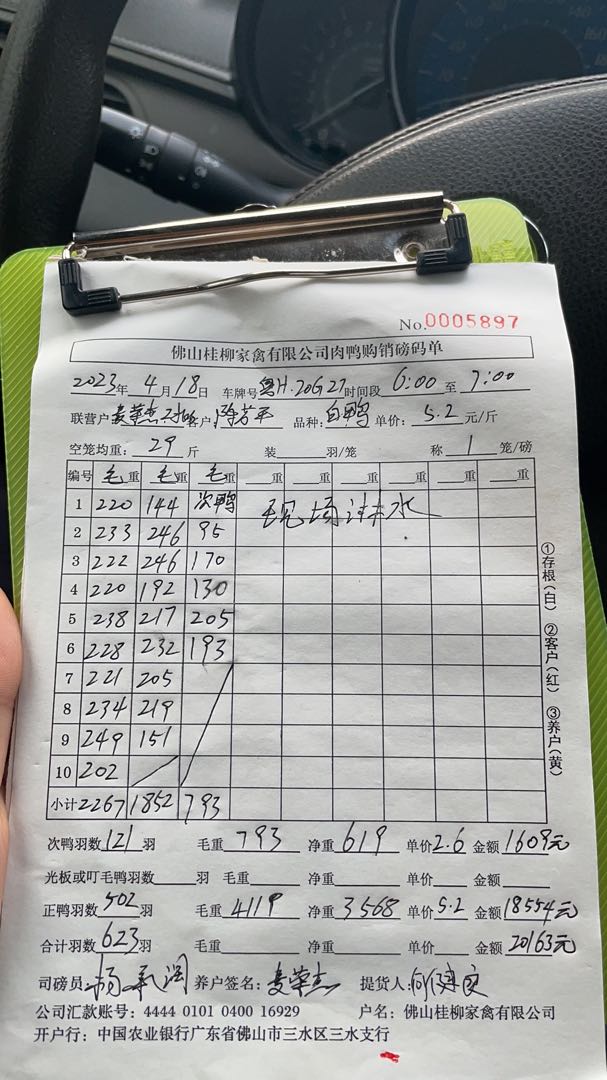 No.0005897
佛山桂柳家禽有限公司肉鸭购销磅码单
2023年4月18日 车牌号粤H·20G27时间段6:00至7:00
联营户麦荣杰 客户 品种:白鸭 单价:5.2元/斤
空笼均重:29斤 装 羽/笼 称1笼/磅
编号 毛重 毛重 毛重 重 重 重 重 重
1 220 144 次鸭 现场冲水
2 233 246 95
3 222 246 170
4 220 192 130
5 238 217 205
6 228 232 193
7 221 205
8 234 219
9 249 151
10 202
小计 2267 1852 793
次鸭羽数121羽 毛重793 净重619 单价2.6 金额1609元
光板或叮毛鸭羽数 羽 毛重 净重 单价 金额
正鸭羽数502羽 毛重4119 净重3568 单价5.2 金额18554元
合计羽数623羽 毛重 净重 单价 金额20163元
司磅员: 养户签名:麦荣杰 提货人:
公司汇款账号:4444 0101 0400 16929 户名:佛山桂柳家禽有限公司
开户行:中国农业银行广东省佛山市三水区三水支行
①存根(白) ②客户(红) ③养户(黄)